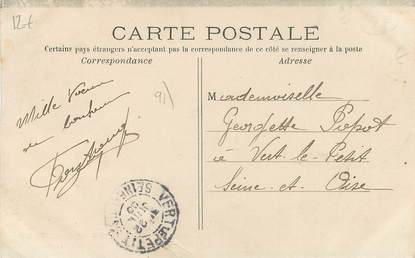 12 €
CARTE POSTALE
Certains pays étrangers n'acceptant pas la correspondance de ce côté se renseigner à la poste
Correspondance
Adresse
Mille Voeux
de bonheur
91)
Mademoiselle
Georgette
à Vert-le-Petit
Seine-et-Oise
VERT-LE-PETIT
SEINE